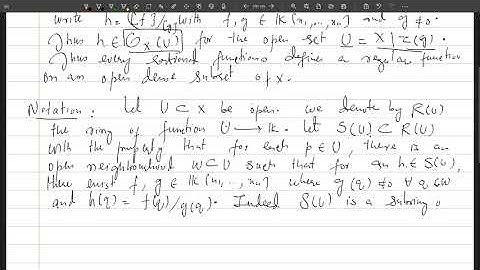 write h = [f]/[g] with f, g ∈ lk [x₁, ..., xₙ] and g ≠ 0.
Thus h ∈ O_X(U) for the open set U = X \ Z(g).
Thus every rational functions defines a regular function
on an open dense subset of X.
Notation: Let U ⊂ X be open. We denote by R(U)
the ring of function U → lk. Let S(U) ⊂ R(U)
with the property that for each p ∈ U, there is an
open neighbourhood W ⊂ U such that for an h ∈ S(U),
there exist f, g ∈ lk [x₁, ..., xₙ] where g(q) ≠ 0 ∀ q ∈ W
and h(q) = f(q)/g(q). Indeed S(U) is a subring o